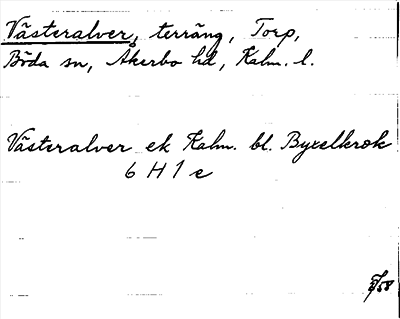 Västeralver, terräng, Torp,
Böda sn, Åkerbo hd, Kalm. l.
Västeralver ek Kalm. bl. Byxelkrok
6 H 1 e